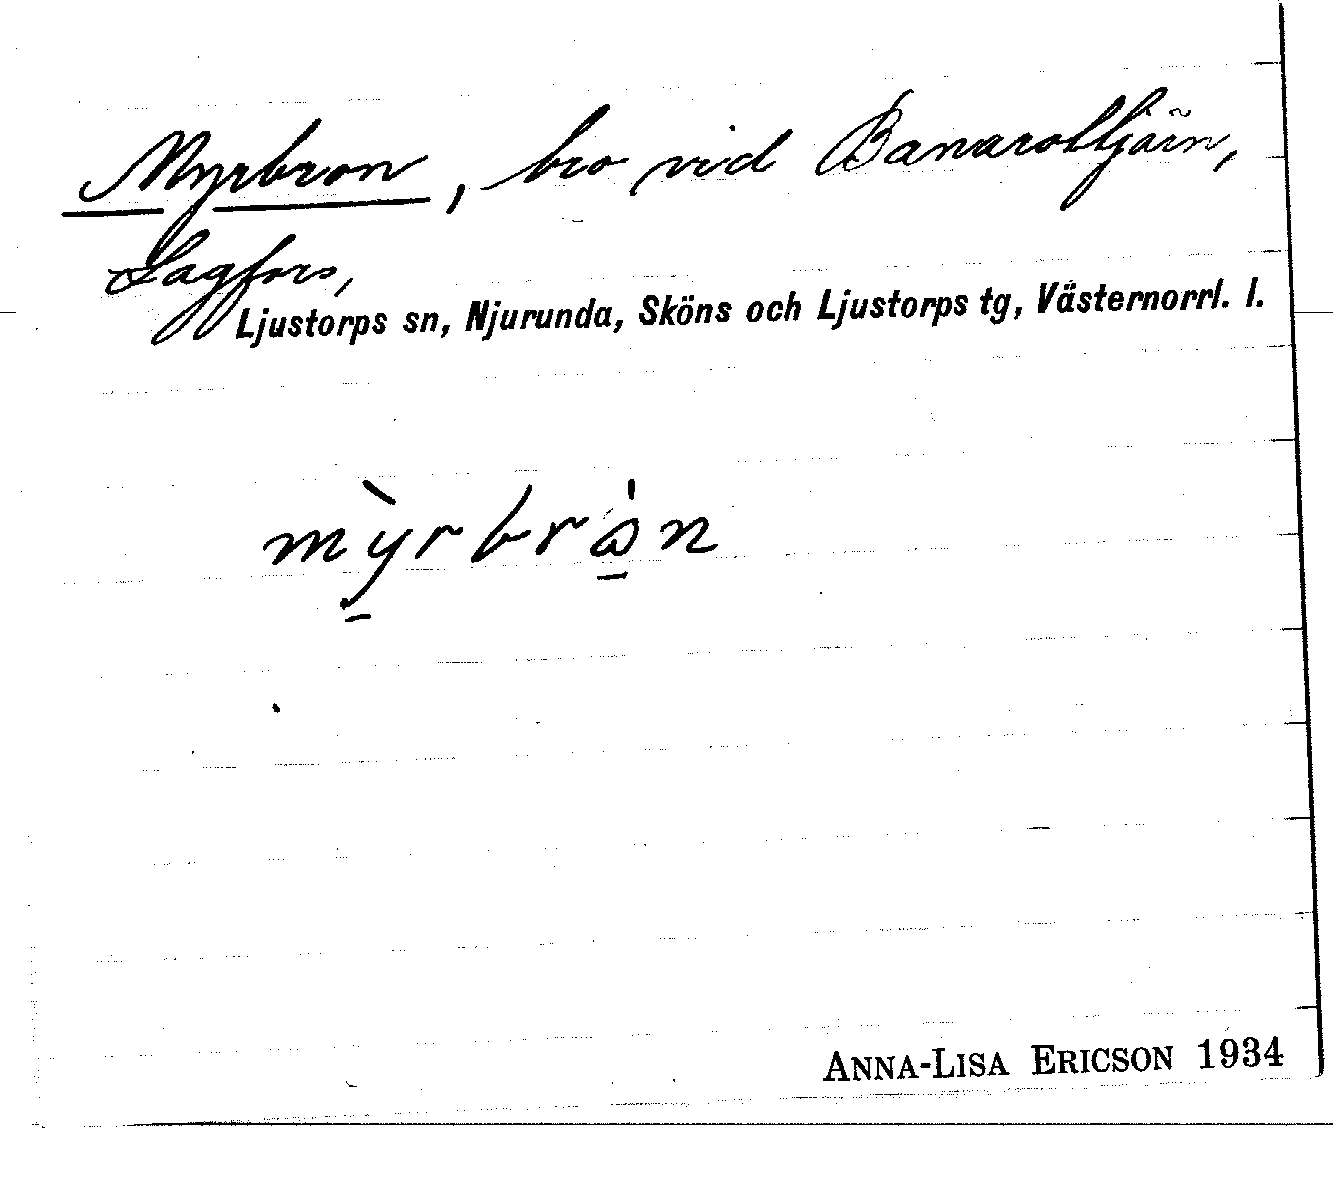 Myrbron, bro vid Banarotjärn,
Lagfors,
Ljustorps sn, Njurunda, Sköns och Ljustorps tg, Västernorrl. l.
mỳrbrò̩n
ANNA-LISA ERICSON 1934